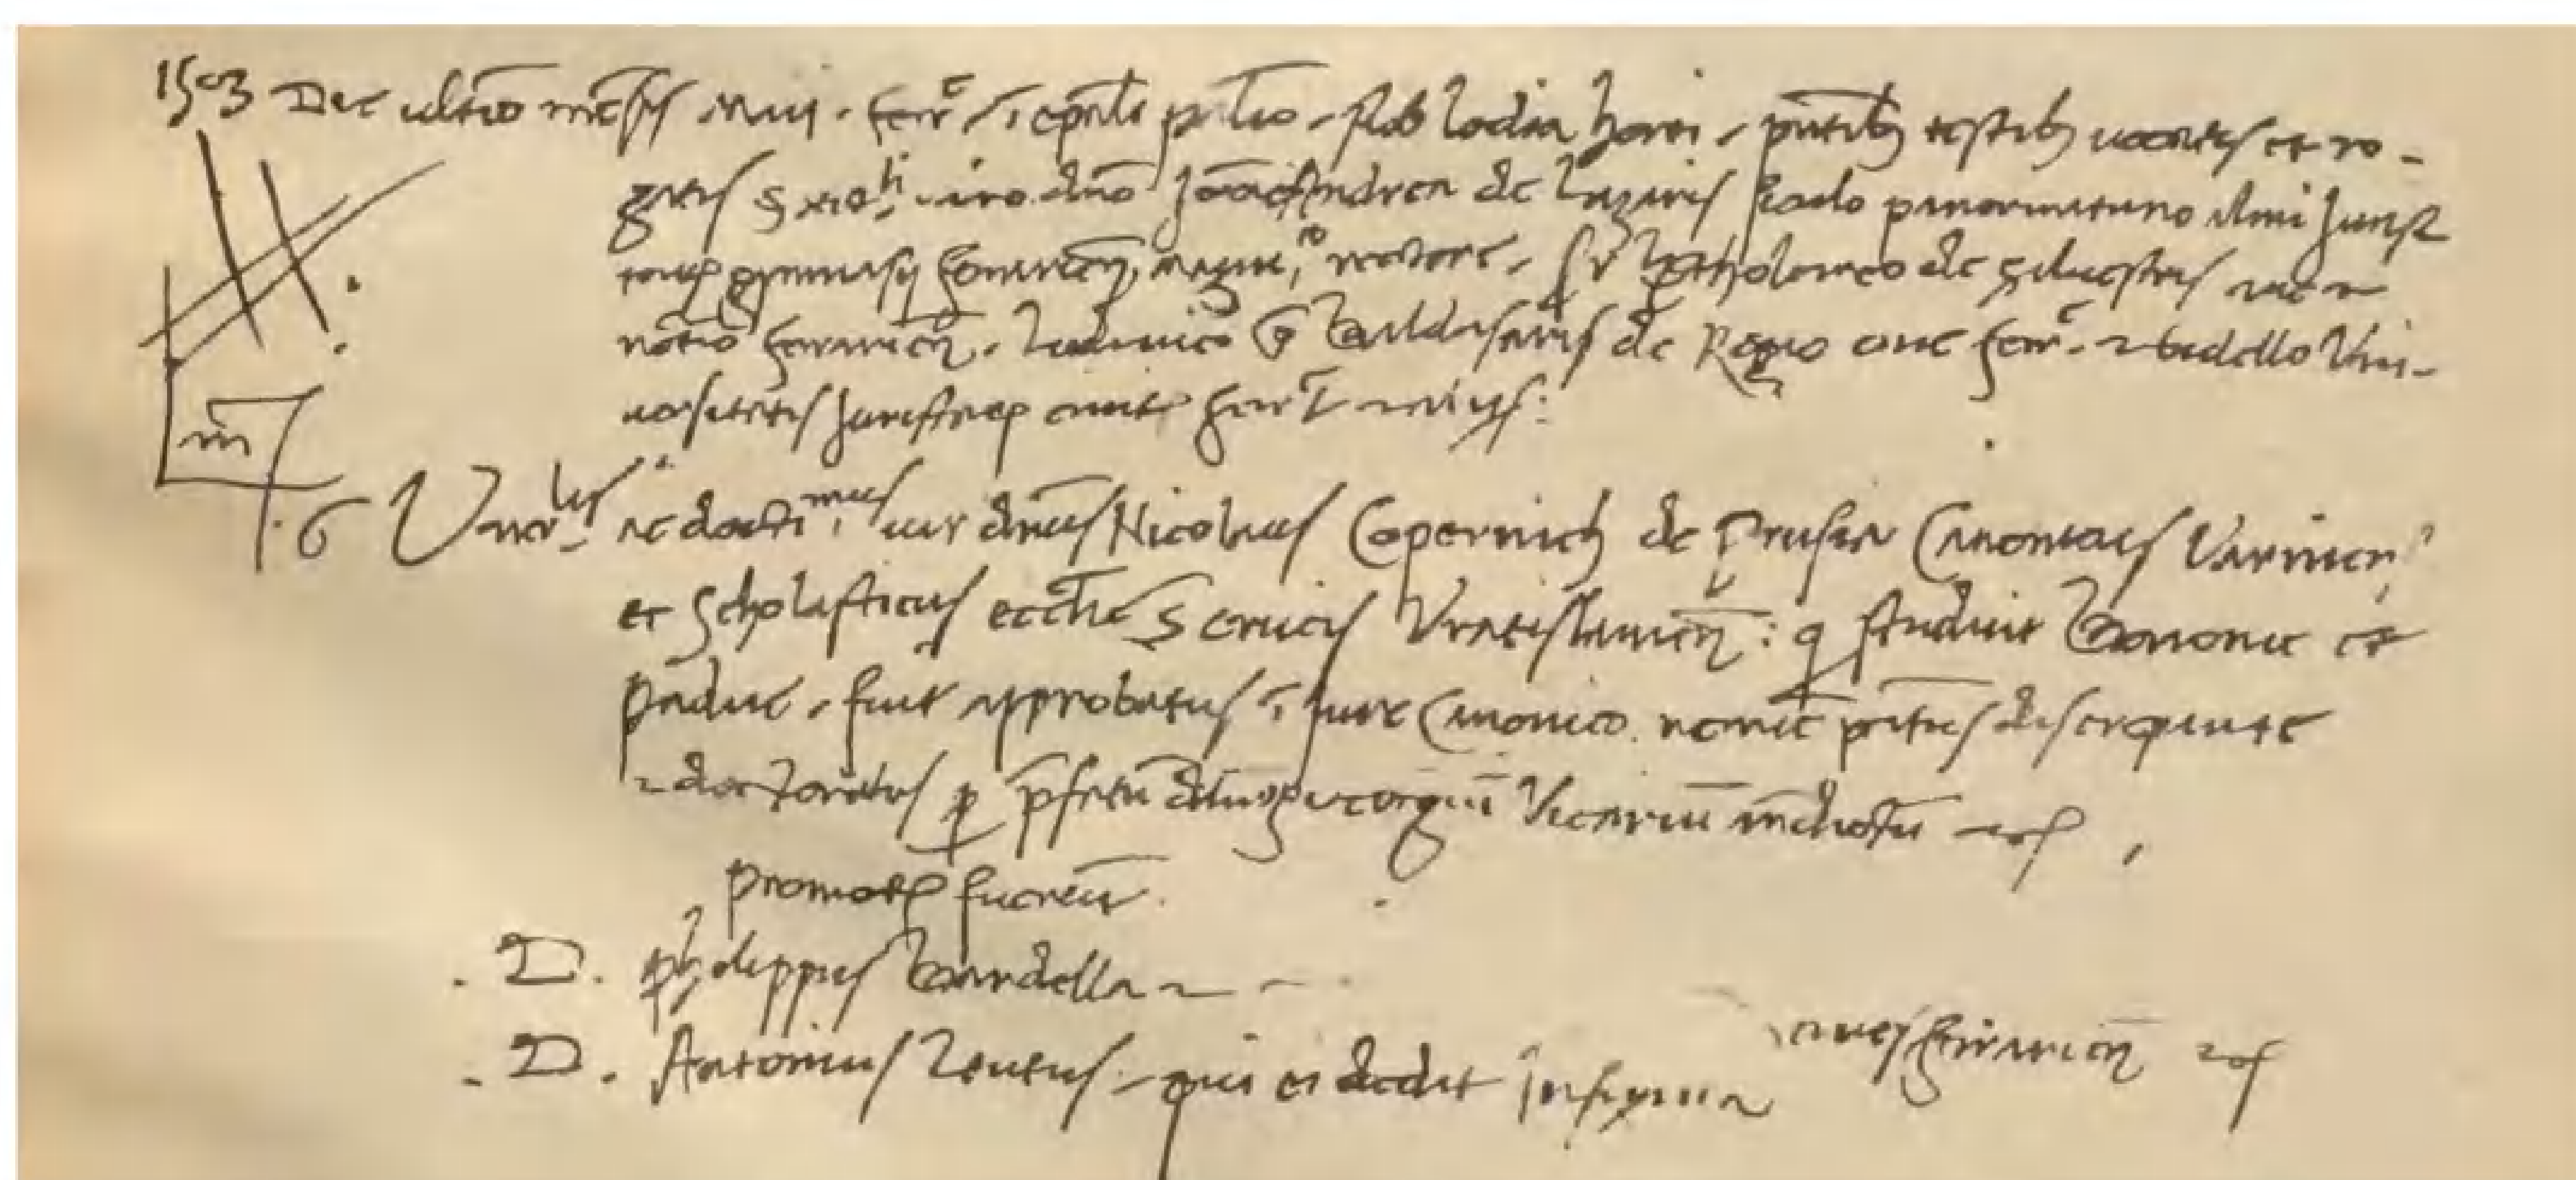 1503 Die ultio mēsis Maij. ferr. ī epāli palō sub lodia horti, pntibȝ testibȝ uocatis et ro-
gatis Spectli uiro dno Joāne Andrea de Lazaris siculo panormitano almi Juris-
tarum gymnasij ferrariēn magco rectore, Ser Bartholomeo de Siluestris ciue et
notario ferrariēn, Ludouico q Baldasaris de Regio ciue ferr. et bidello Vni-
uersitatis Juristarum ciuit ferr et alijs:
Venerlis ac doctimus uir dnus Nicolaus Copernich de Prusia Canonicus Varmien
et Scholasticus ecclie S crucis Vratislauien: q studuit Bononie et
Padue, fuit approbatus ī Jure Canonico nemie pnitus discrepante
et doctoratus p prefatu dnum Georgiu Vicariu antedictu etc
promotores fuerūt
D. Philippus Bardella et
D. Antonius Leutus, qui ei dedit Insignia
ciues ferrarien etc